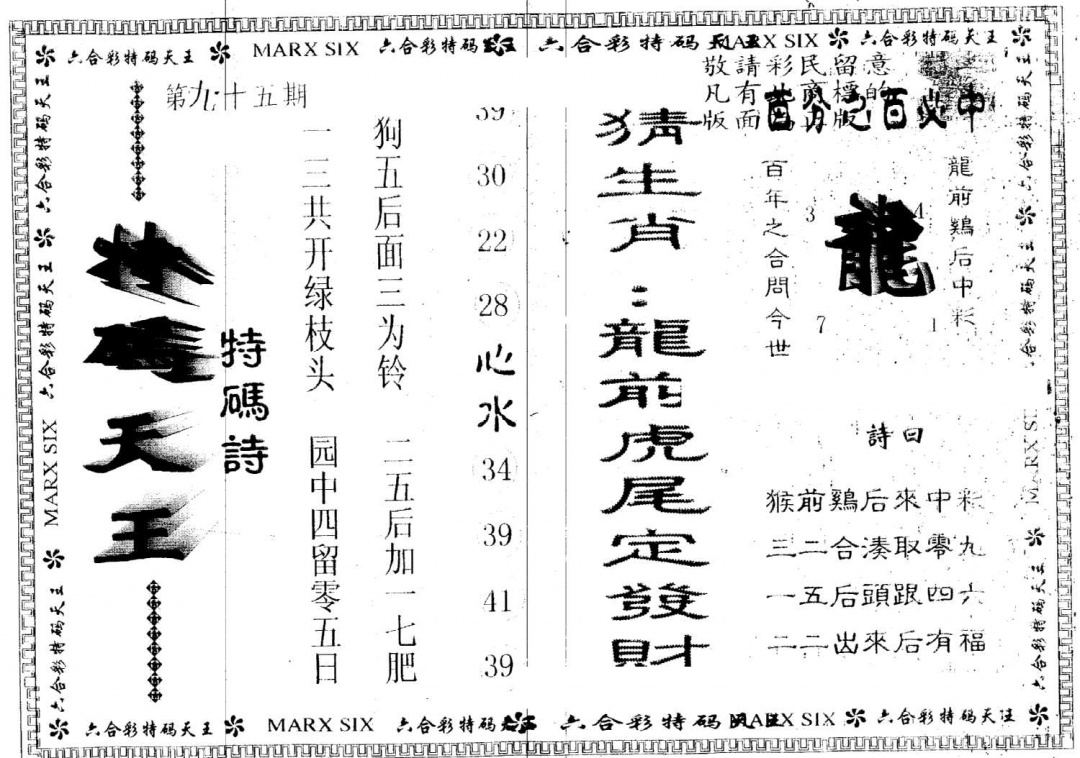 六合彩特码天王 MARX SIX 六合彩特码 六合彩特码 MARX SIX 六合彩特码天王
第九十五期
特碼天王
特碼詩
一三共开绿枝头 园中四留零五日
狗五后面三为铃 二五后加一七肥
39
30
22
28
心水
34
39
41
39
猜生肖：龍前虎尾定發財
敬請彩民留意
凡有
版面
百分之百必中
百年之合問今世
龍
3
4
7
1
龍前鷄后中彩
詩曰
猴前鷄后來中彩
三二合湊取零九
一五后頭跟四六
二二出來后有福
六合彩特码天王
MARX SIX
六合彩特码天王
六合彩特码天王
六合彩特码天王 MARX SIX 六合彩特码 六合彩特码 MARX SIX 六合彩特码天王